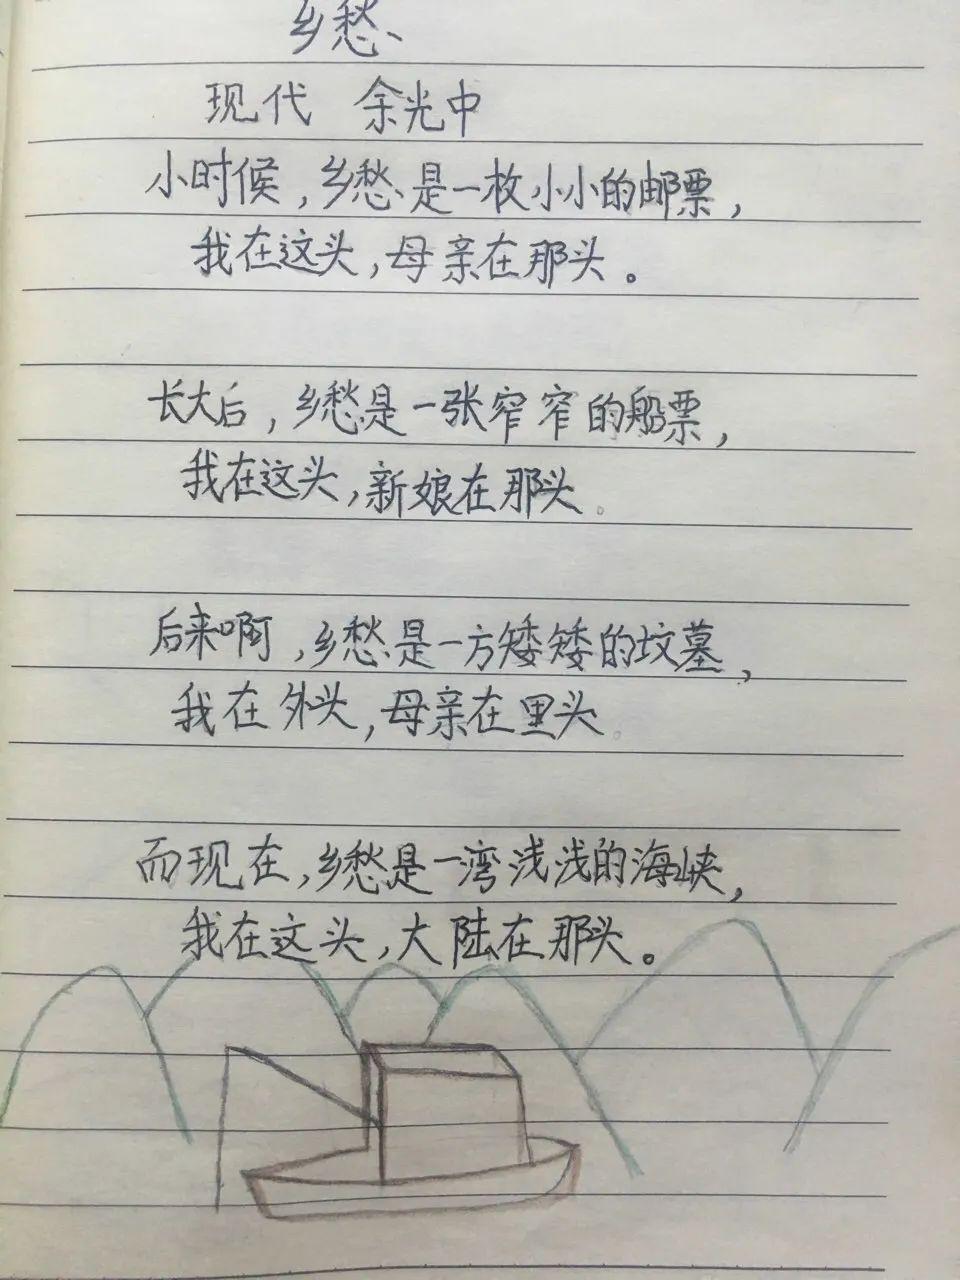 乡愁
现代 余光中
小时候,乡愁是一枚小小的邮票,
我在这头,母亲在那头。
长大后,乡愁是一张窄窄的船票,
我在这头,新娘在那头。
后来啊,乡愁是一方矮矮的坟墓,
我在外头,母亲在里头。
而现在,乡愁是一湾浅浅的海峡,
我在这头,大陆在那头。